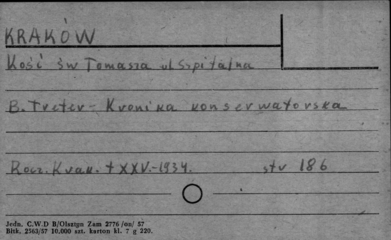 KRAKÓW
Kość św Tomasza ul Szpitalna
B. Treter - Kronika konserwatorska
Rocz. Krak. t XXV.-1934. str 186
Jedn. C.W.D B/Olsztyn Zam 2776 /oa/ 57
Bltk. 2563/57 10.000 szt. karton kl. 7 g 220.